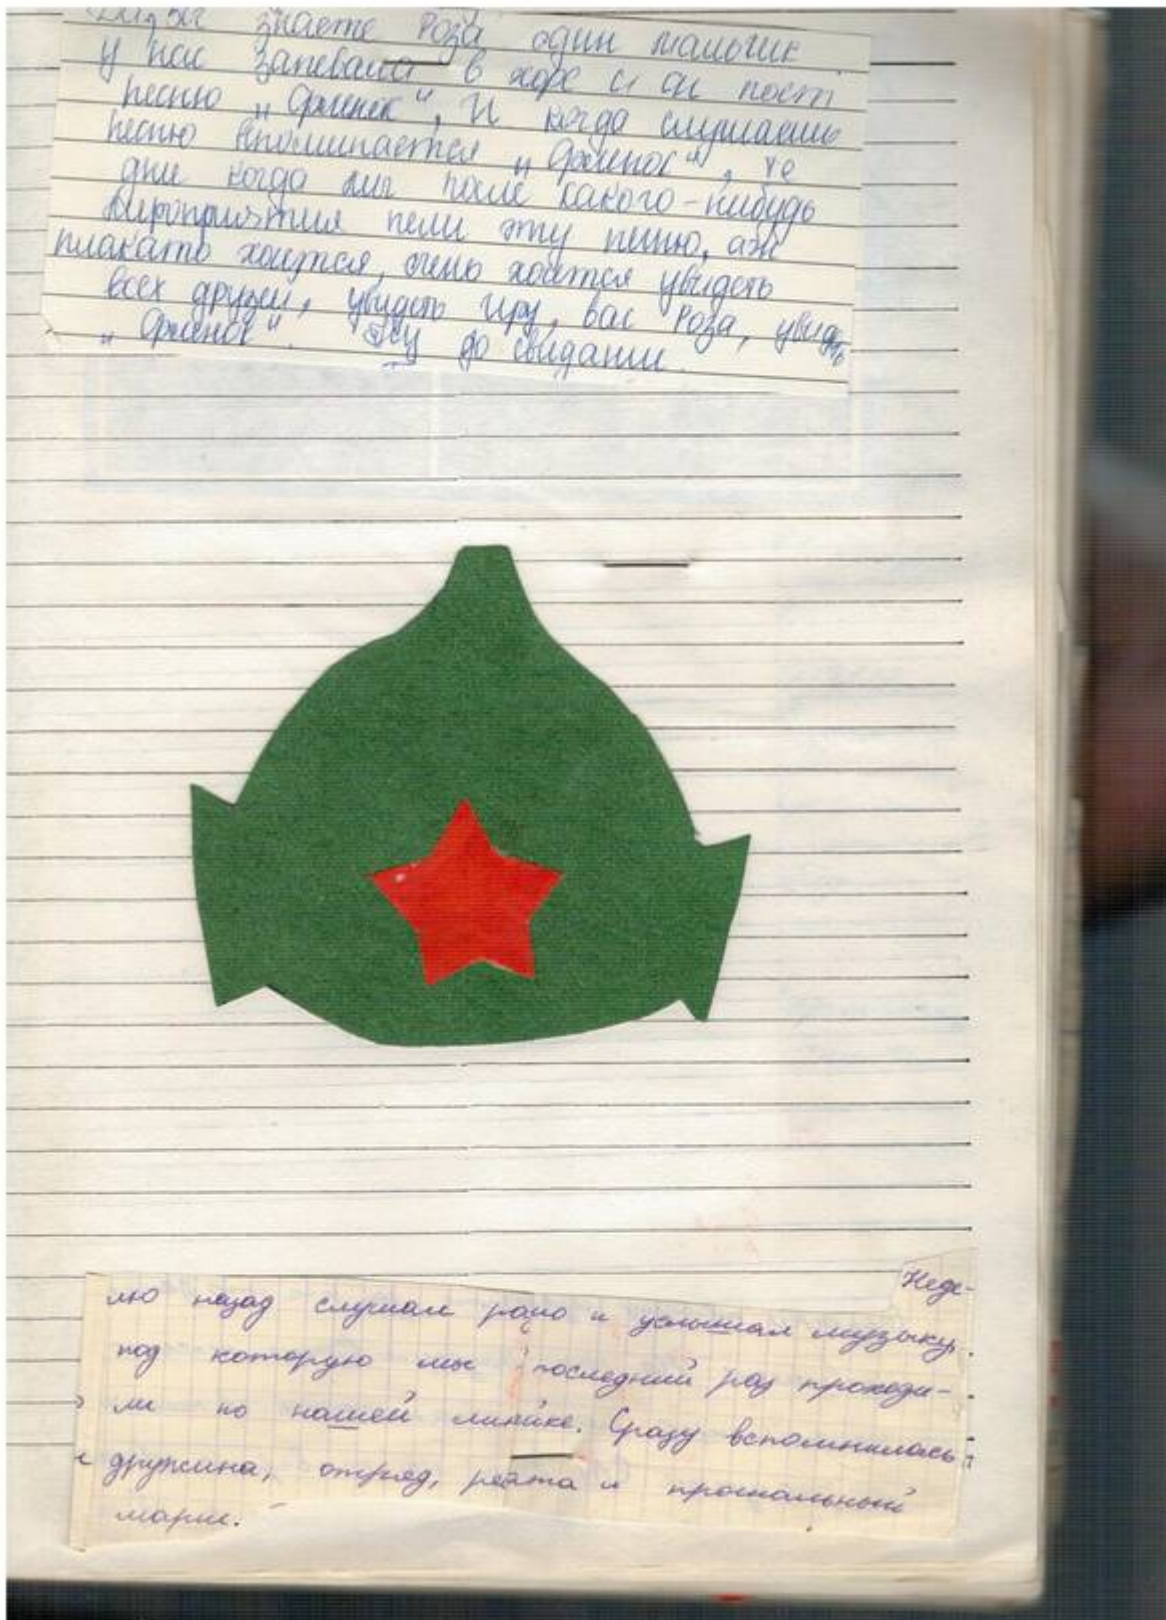 знаете Роза один мальчик
у нас запевала в хоре и он поет
песню „Орленок", И когда слушаешь
песню вспоминается „Орленок", те
дни когда мы после какого-нибудь
мероприятия пели эту песню, аж
плакать хочется, очень хочется увидеть
всех друзей, увидеть Иру, вас Роза, увидеть
„Орленок". до свидания.
Неде-
лю назад слушал радо и услышал музыку,
под которую мы последний раз проходи-
ли по нашей линйке. Сразу вспомнилась
дружина, отряд, ребята и прощальный
марш.